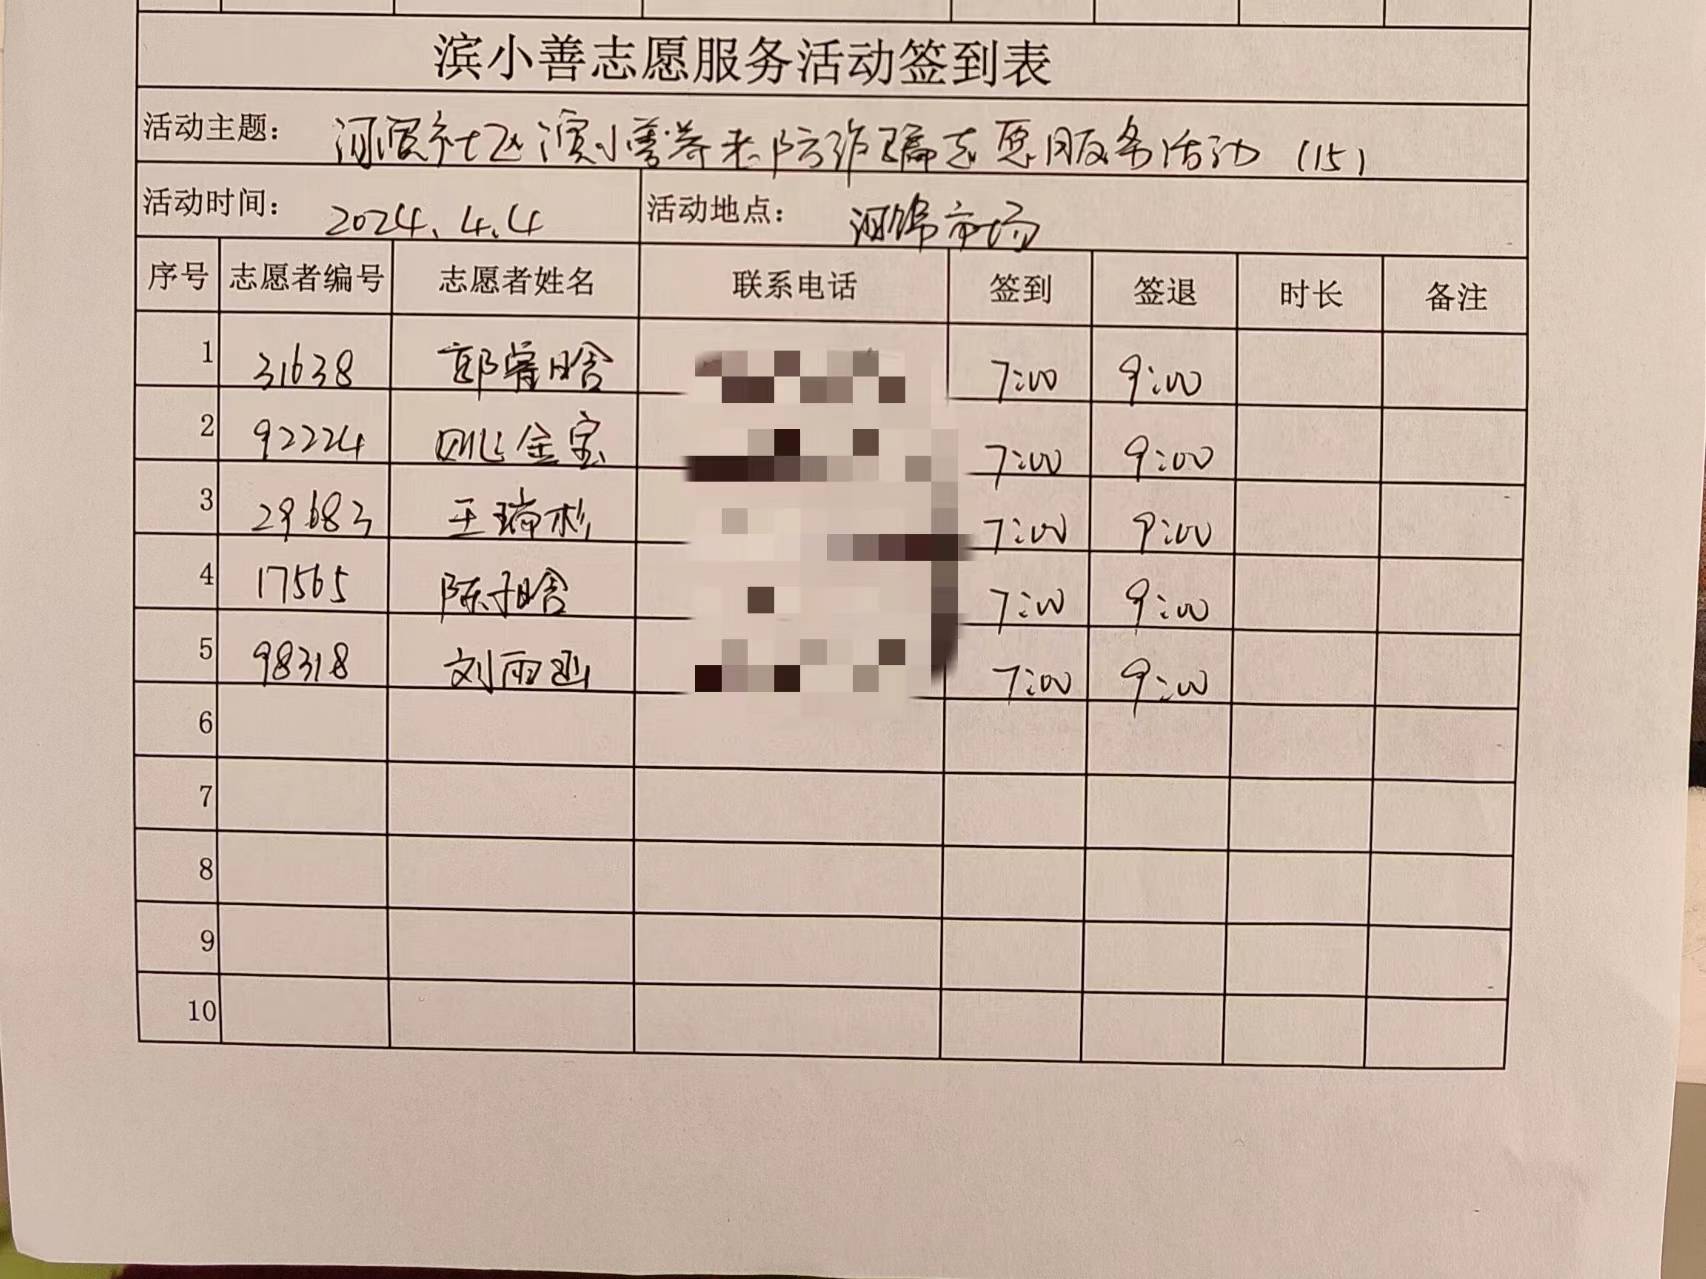 滨小善志愿服务活动签到表
活动主题： 河滨社区滨小善养老防诈骗志愿服务活动（15）
活动时间： 2024.4.4 活动地点： 市场
序号 志愿者编号 志愿者姓名 联系电话 签到 签退 时长 备注
1 31638 郭 晗 7:00 9:00
2 92224 姚金宝 7:00 9:00
3 29683 王瑞杉 7:00 9:00
4 17565 陈 晗 7:00 9:00
5 98318 刘雨函 7:00 9:00
6
7
8
9
10